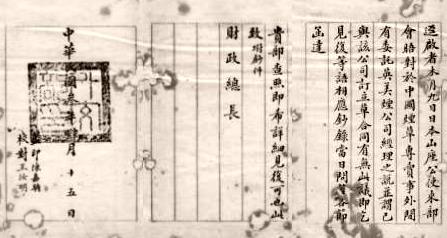 逕啟者本月九日日本山座公使來部
會晤對於中國煙草專賣事外間
有委託英美煙公司經理之說並謂已
與該公司訂立草合同有無此議即乞
見復等語相應鈔錄當日問答即
函達
貴部查照即希詳細見復可也此
致 附鈔件
財政總長
中華民國叁年 月十五日
監印陳嘉
校對王汝明